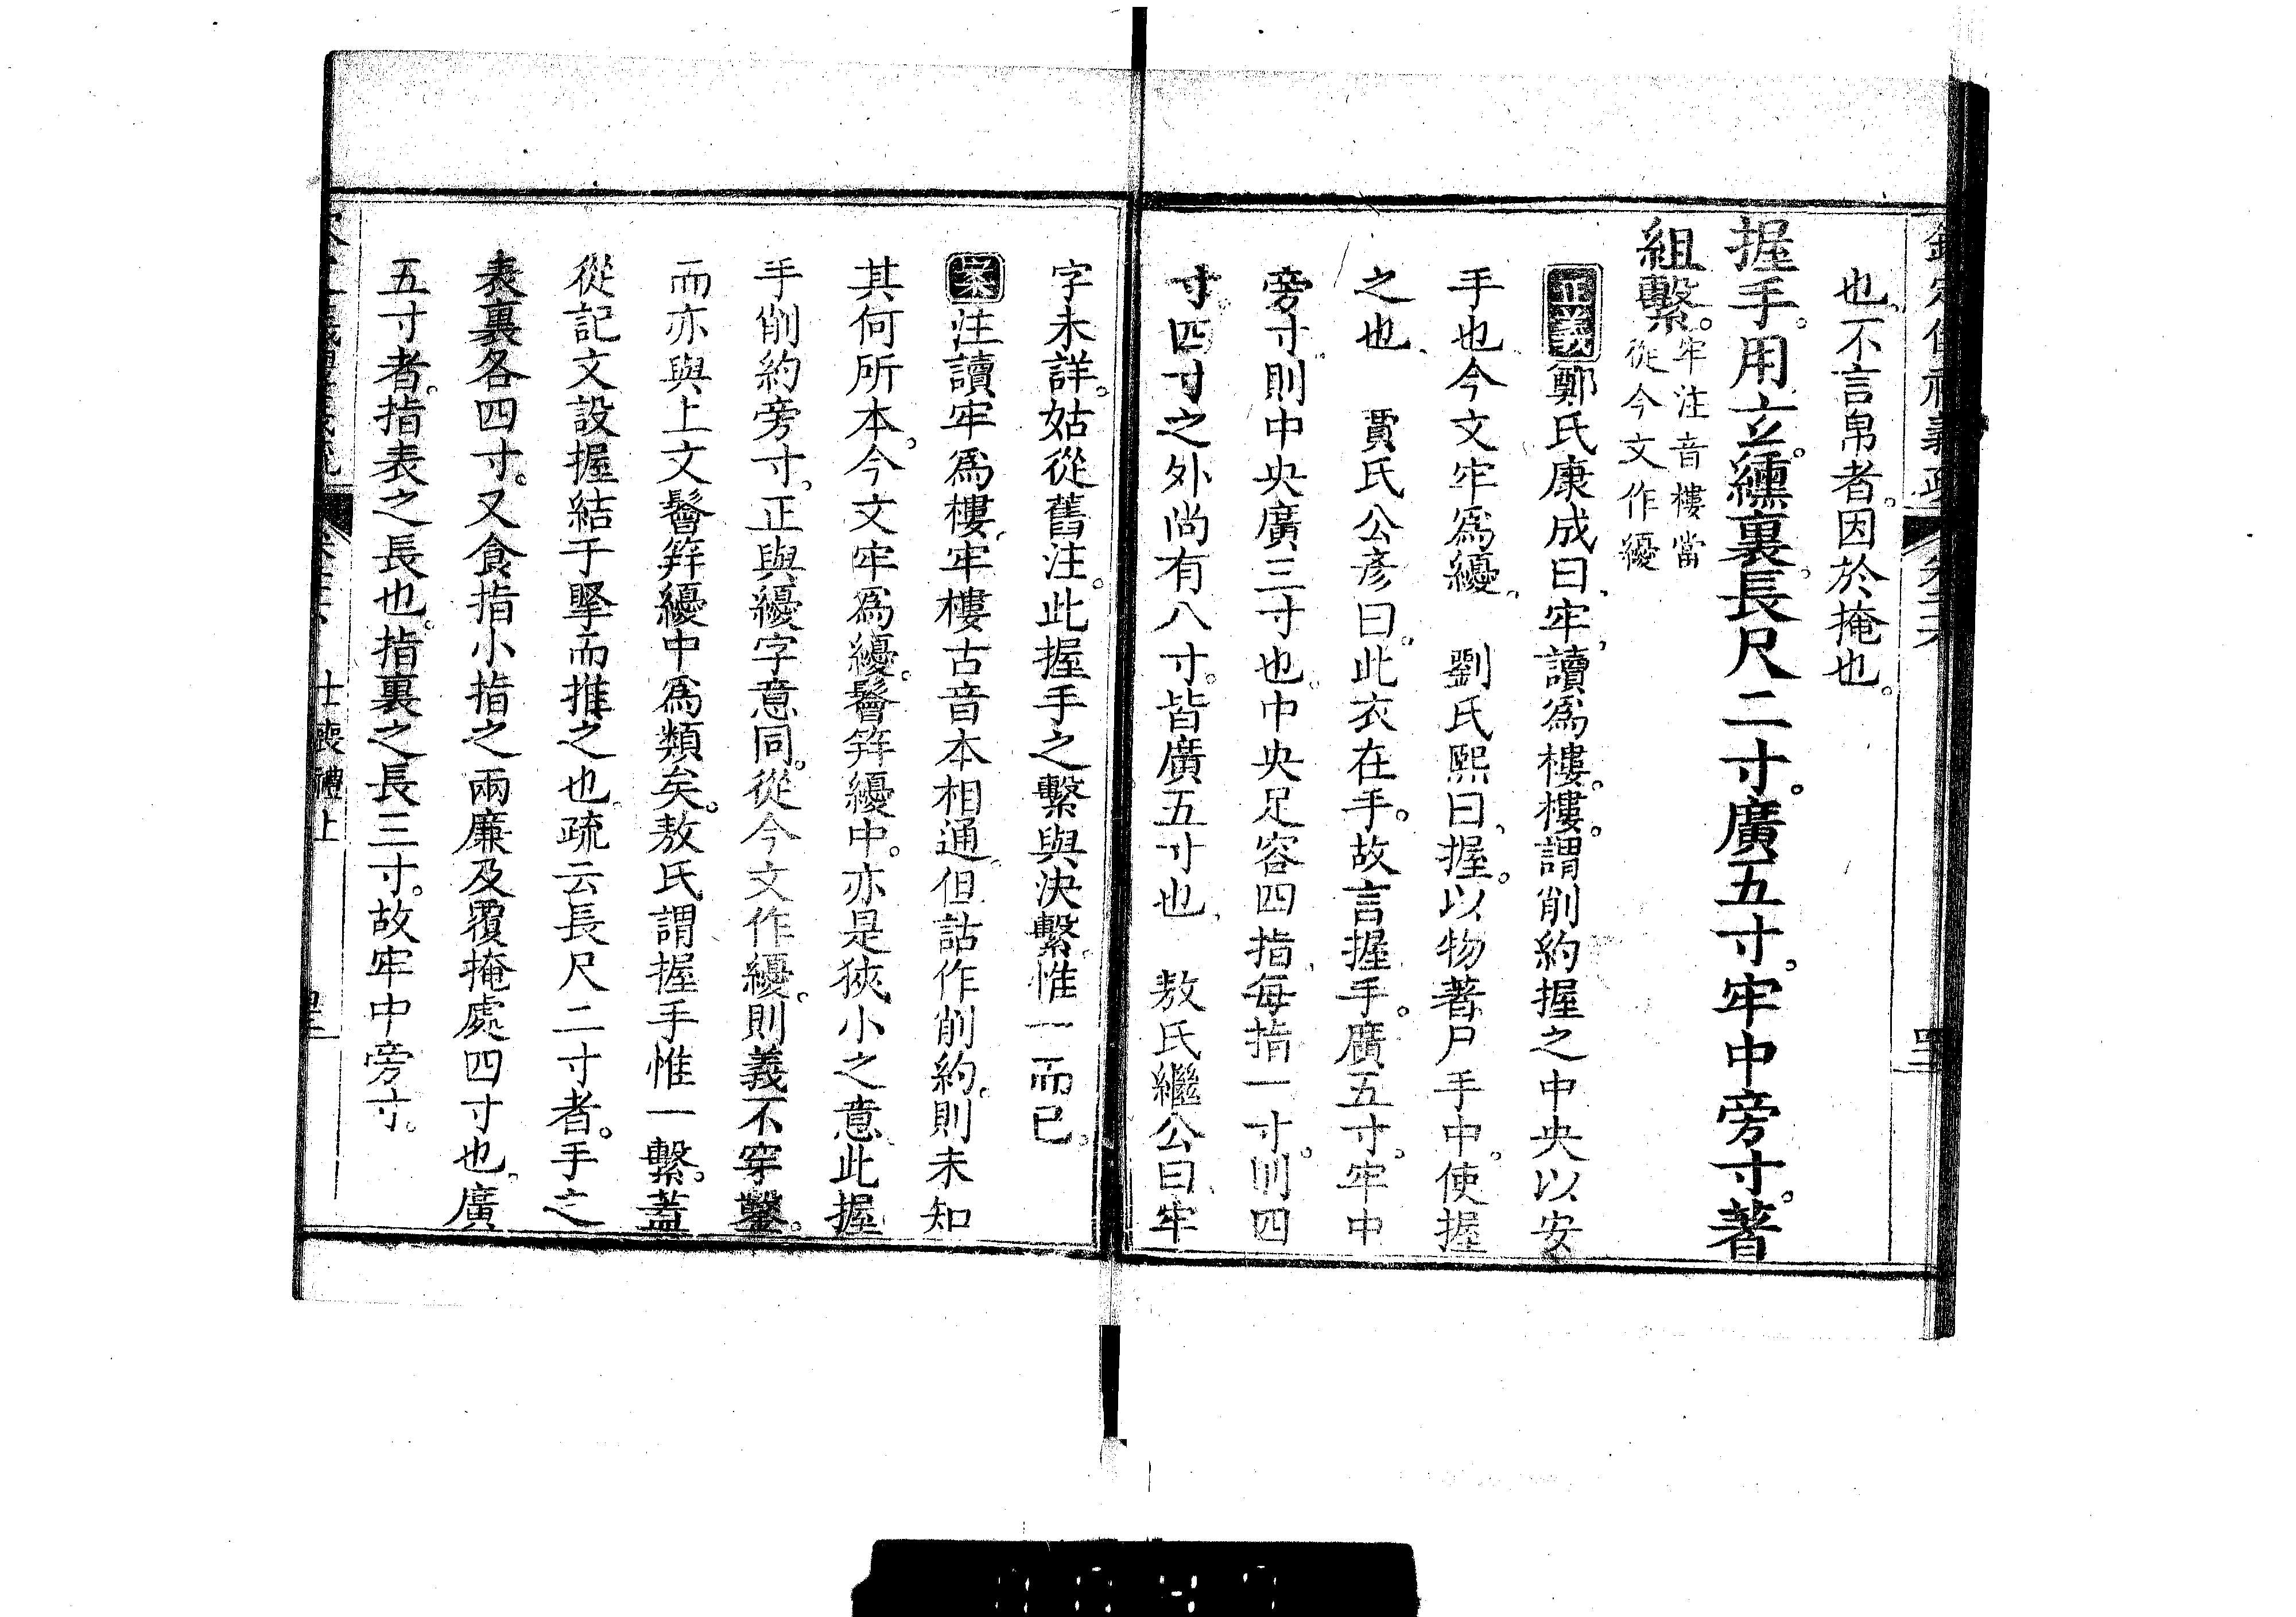 也、不言帛者。因於掩也。
握手。用玄。纁裏。長尺二寸。廣五寸。牢中旁寸。著
組繫。牢注音樓當
從今文作纋
正義鄭氏康成曰、牢、讀爲樓。樓。謂削約握之中央以安
手也、今文牢爲纋。 劉氏熙曰、握。以物著尸手中。使握
之也、 賈氏公彥曰。此衣在手。故言握手。廣五寸。牢中
旁寸。則中央廣三寸也。中央足容四指、每指一寸。則四
寸。四寸之外尚有八寸。皆廣五寸也、 敖氏繼公曰、牢
字未詳。姑從舊注。此握手之繫與決繫。惟一而已。
案注讀牢爲樓、牢樓古音本相通。但詁作削約。則未知
其何所本。今文牢爲纋。鬠笄纋中。亦是狹小之意、此握
手削約旁寸。正與纋字意同。從今文作纋。則義不穿鑿。
而亦與上文鬠笄纋中爲類矣。敖氏謂握手惟一繫。蓋
從記文設握結于掔而推之也。疏云長尺二寸者。手之
表裏各四寸。又食指小指之兩廉及覆掩處四寸也、廣
五寸者。指表之長也。指裏之長三寸。故牢中旁寸。
士喪禮上